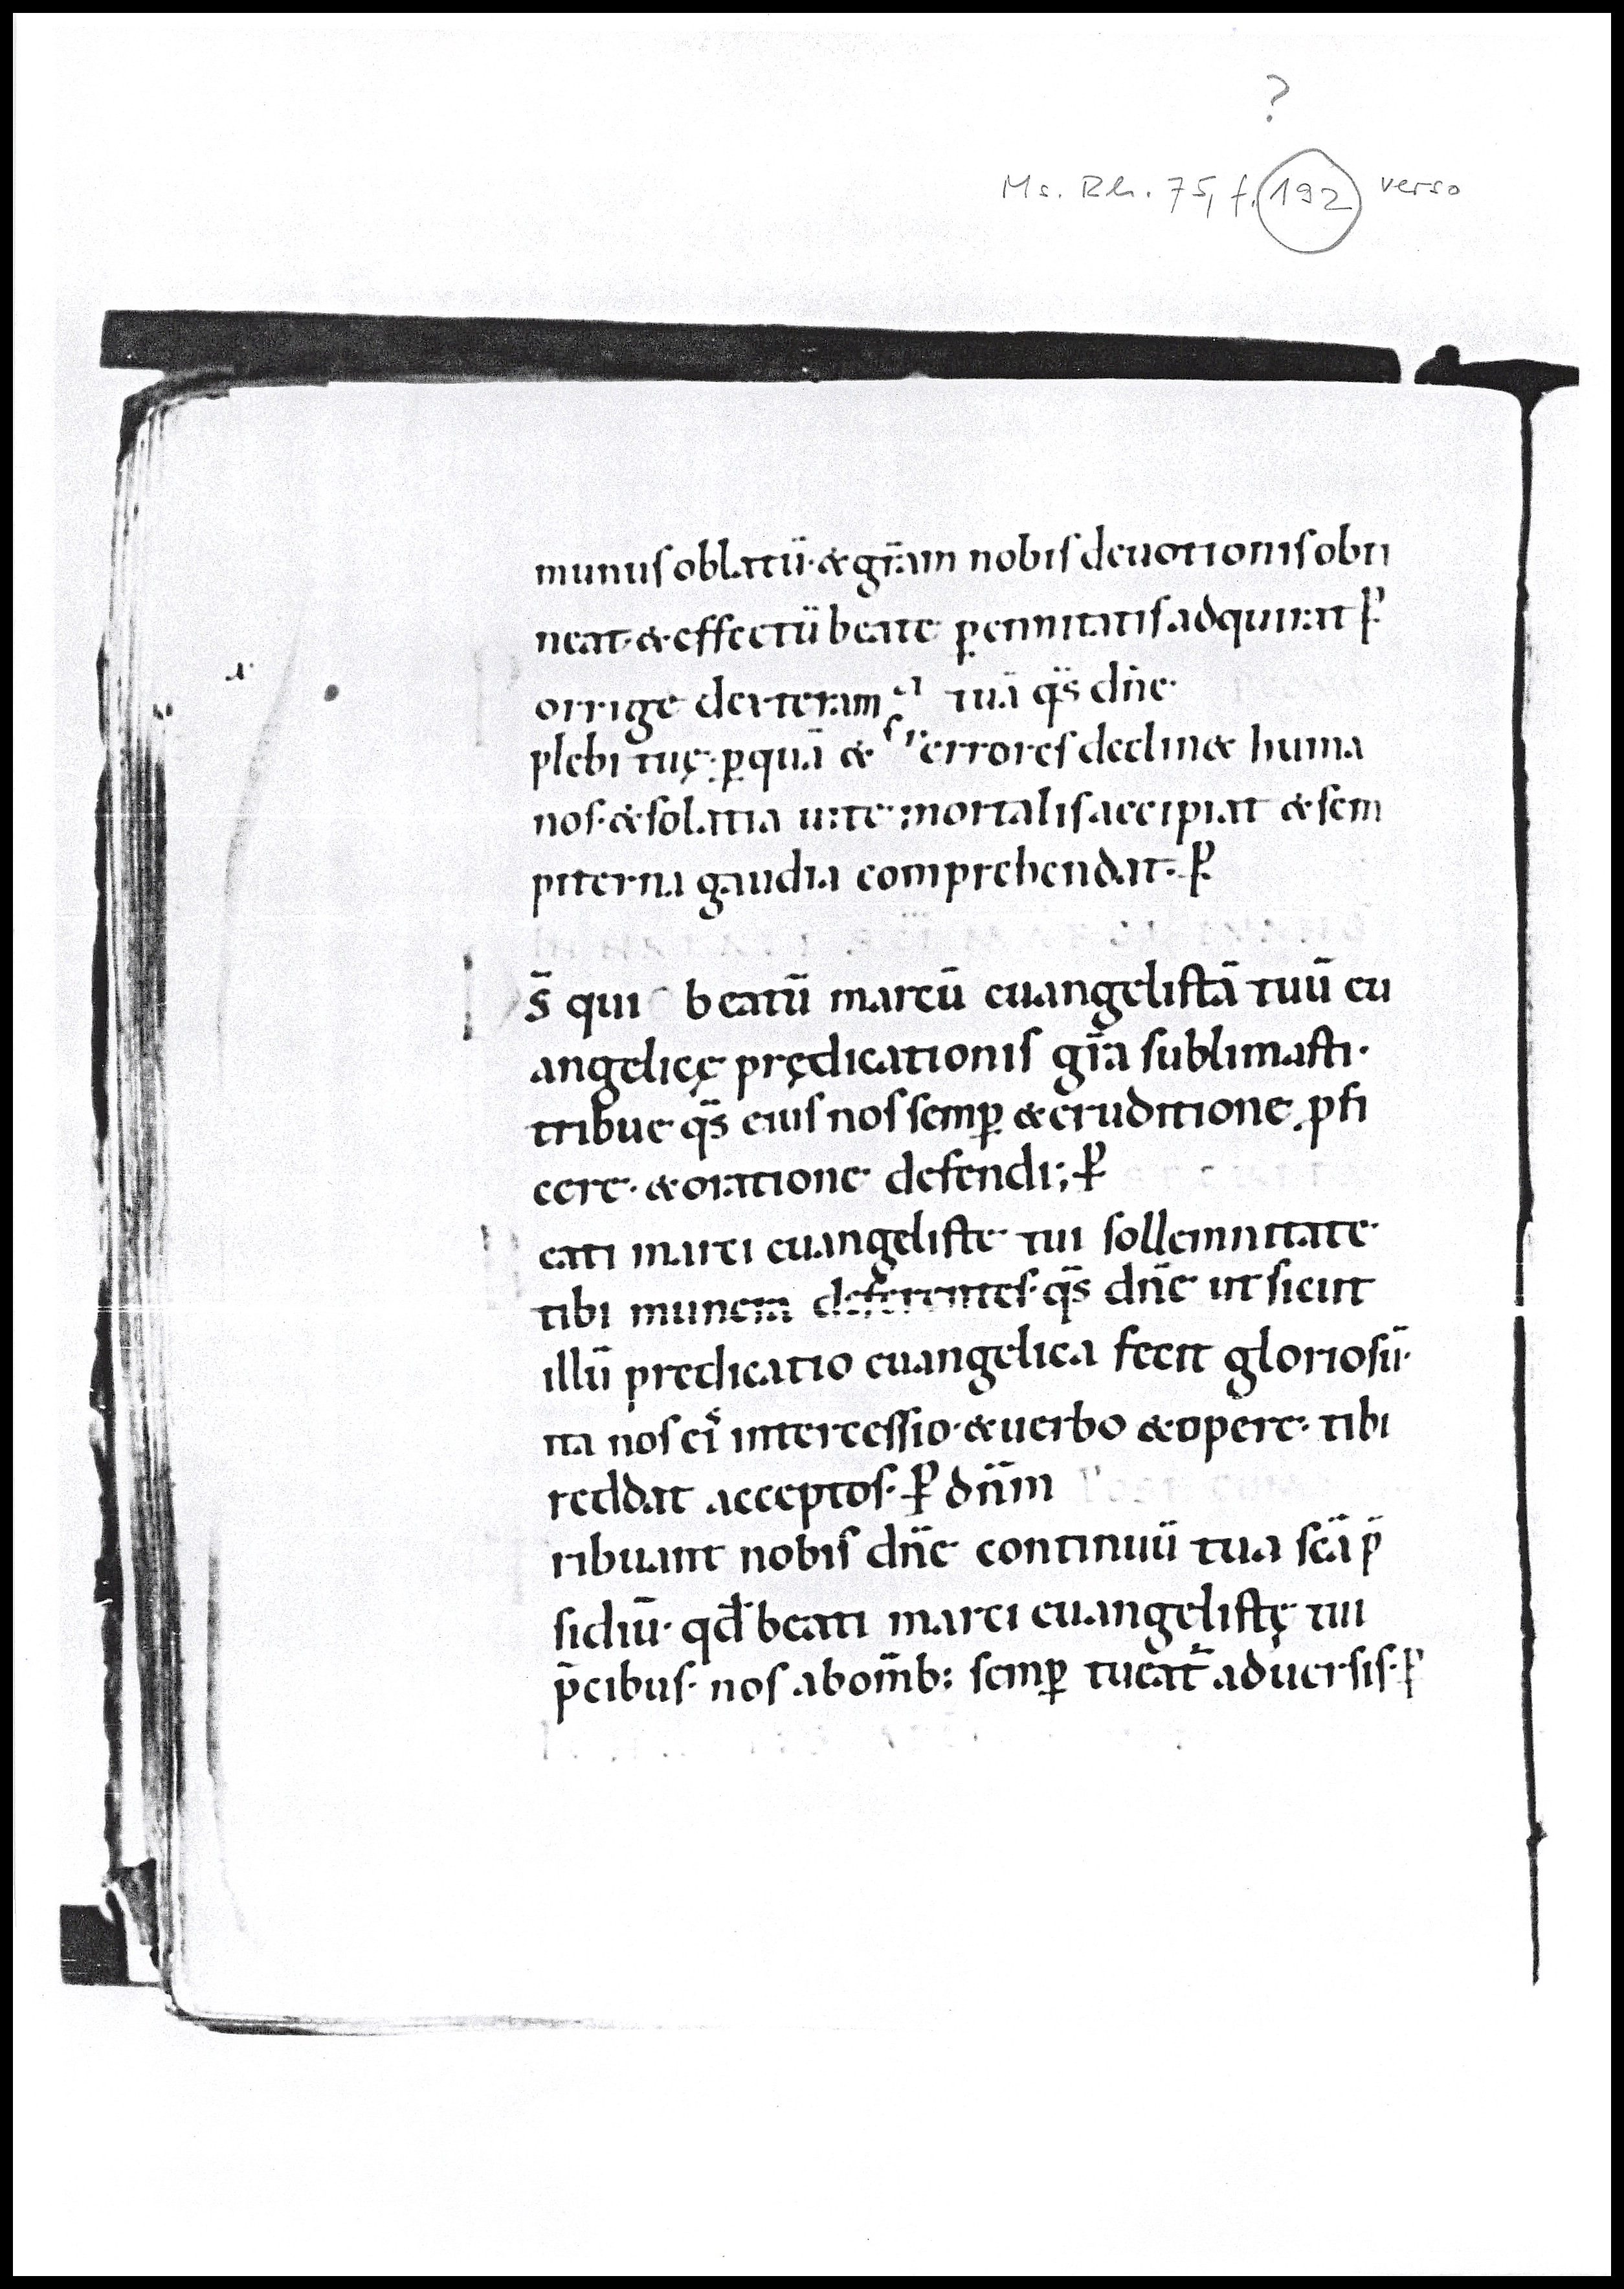 ?
Ms. Rh. 75, f. 192 verso
munuſ oblatū· & grām nobiſ deuotioniſ obti
neat· & effectū beate ꝑennitatiſ adquirat ꝑ
orrige dexteram tuā qs̄ dn̄e·
plebi tuę· ꝑ quā & erroreſ declin& huma
noſ· & ſolatia uite mortaliſ accipiat & ſem
piterna gaudia comprehendat· ꝑ
s̄ qui beatū marcū euangeliſtā tuū eu
angelicę prędicationiſ grā ſublimaſti·
tribue qs̄ eiuſ noſ ſemꝑ & eruditione ꝓfi
cere· & oratione defendi; ꝑ
eati marci euangeliſte tui ſollemnitate
tibi munera deferenteſ· qs̄ dn̄e ut ſicut
illū predicatio euangelica fecit glorioſū·
ita noſ ei' interceſſio· & uerbo & opere· tibi
reddat acceptoſ· ꝑ dn̄m
ribuant nobiſ dn̄e continuū tua ſc̄a p̄
ſidiū· qd̄ beati marci euangeliſtę tui
p̄cibuſ· noſ ab om̄ib; ſemꝑ tueat̄ aduerſiſ· ꝑ